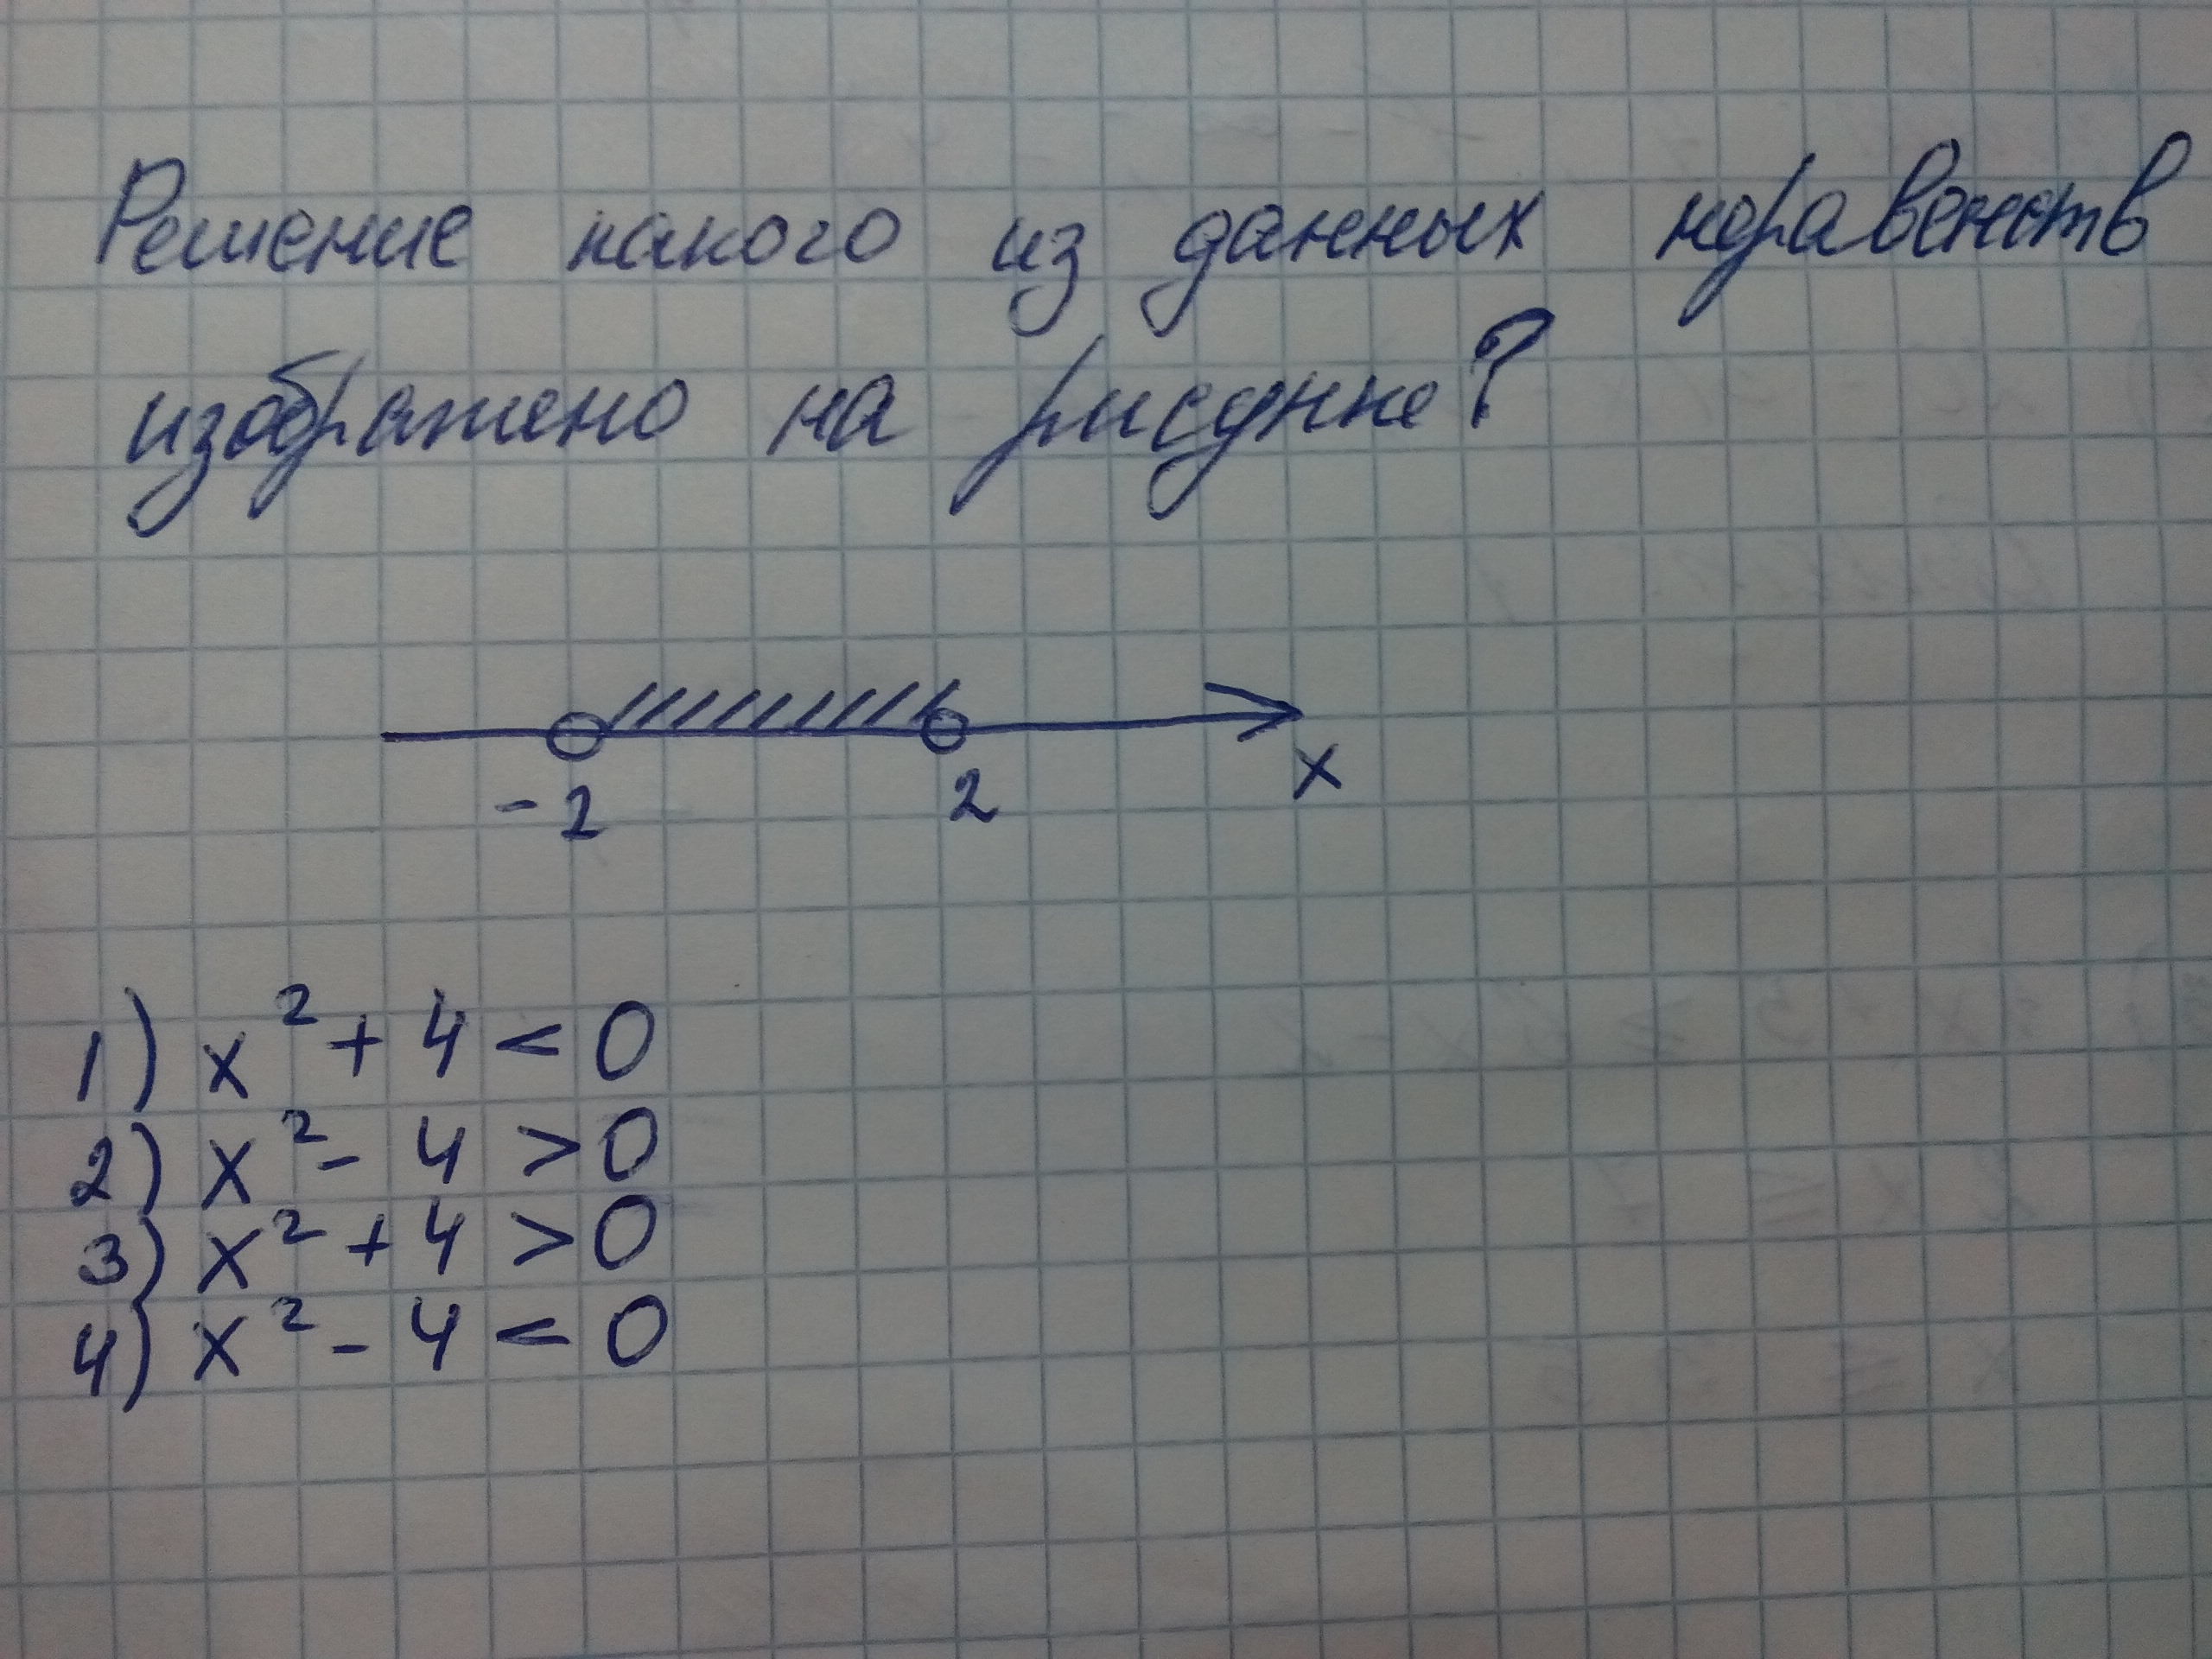 Решение какого из данных неравенств
изображено на рисунке?
-2 2 x
1) x² + 4 < 0
2) x² - 4 > 0
3) x² + 4 > 0
4) x² - 4 < 0